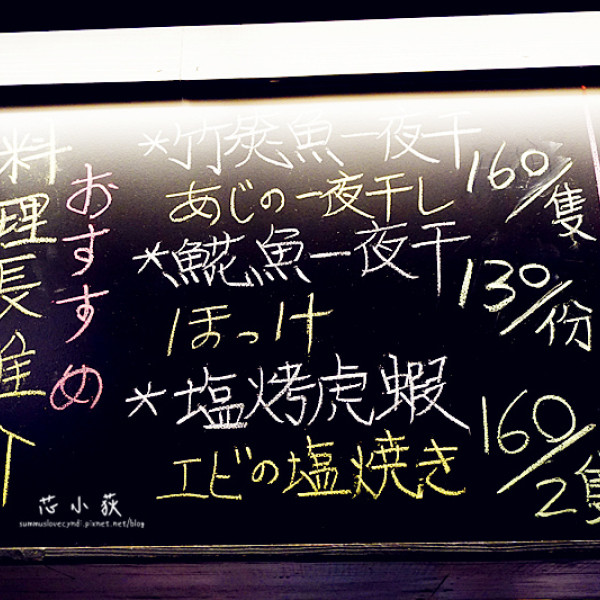 料理長推介
おすすめ
*竹筴魚一夜干
160/隻
あじの一夜干し
*鯱魚一夜干
130/份
ほっけ
*塩烤虎蝦
160/2隻
エビの塩焼き
芯小荻
summuslovecyndi.pixnet.net/blog